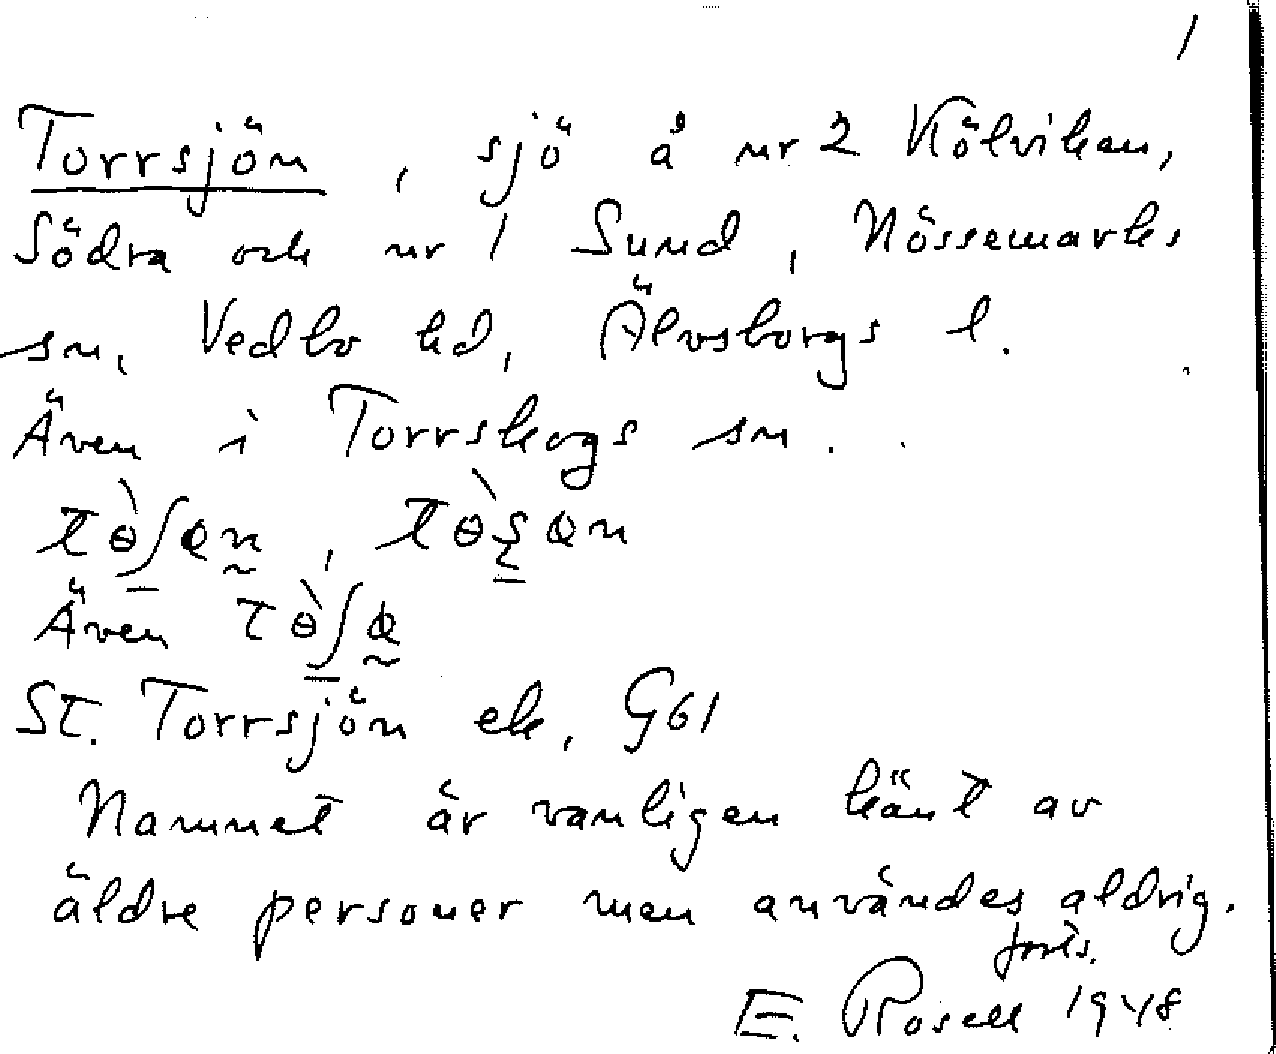 1
Torrsjön, sjö å nr 2 Kölviken,
Södra och nr 1 Sund, Nössemarks
sn, Vedbo hd, Älvsborgs l.
Även i Torrskogs sn.
tɵ̀ʃɵn,
Även tɵ̀ʃɵ
St. Torrsjön ek, G61
Namnet är vanligen känt av
äldre personer men användes aldrig.
forts.
E. Rosell 1948